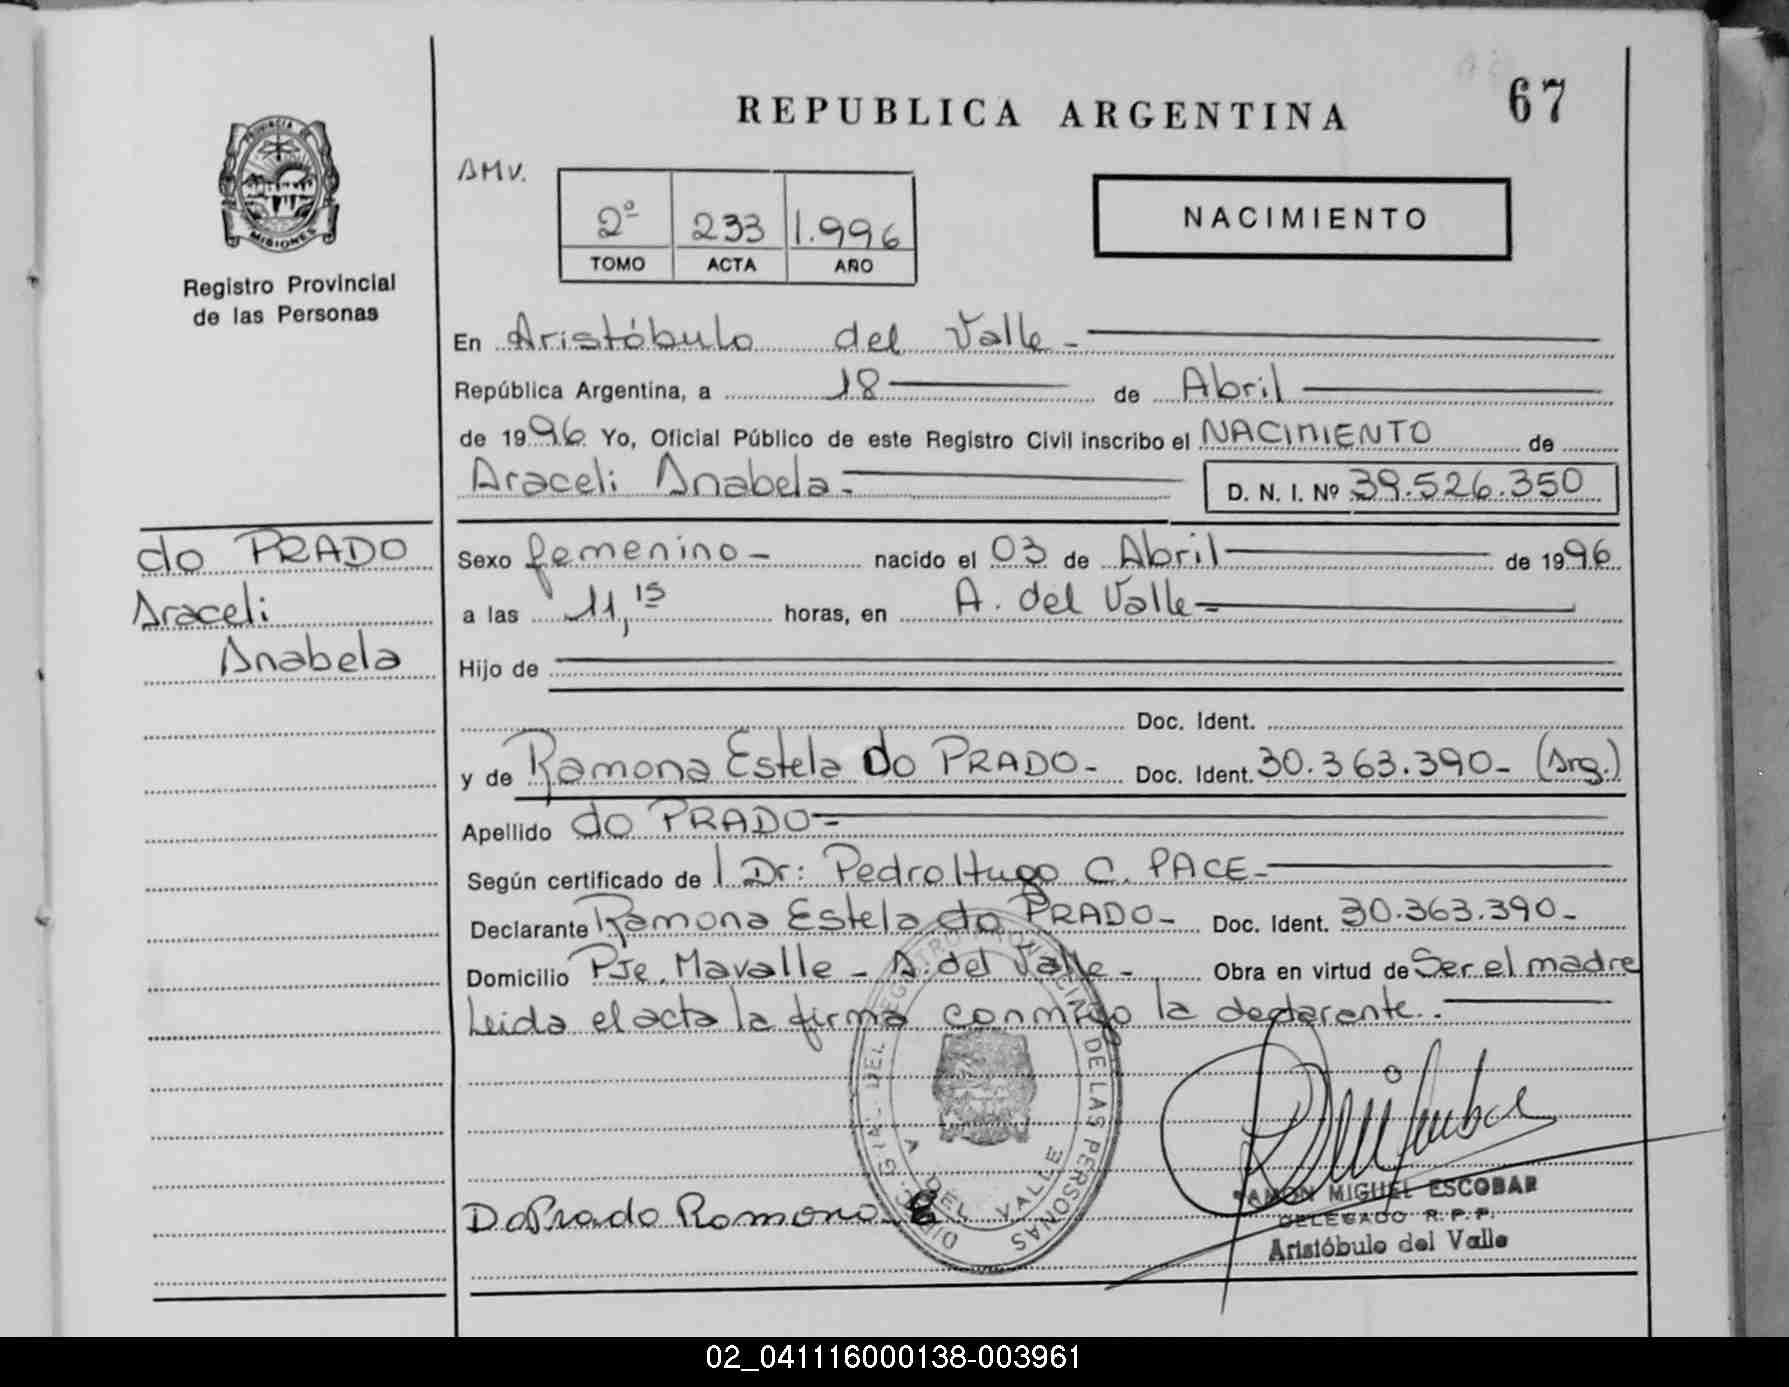 REPUBLICA ARGENTINA
67
PROVINCIA DE
MISIONES
Registro Provincial
de las Personas
AMV.
2º 233 1.996
TOMO ACTA AÑO
NACIMIENTO
En Aristóbulo del Valle -
República Argentina, a 18 de Abril
de 1996 Yo, Oficial Público de este Registro Civil inscribo el NACIMIENTO de
Araceli Anabela - D. N. I. Nº 39.526.350
do PRADO
Araceli
Anabela
Sexo femenino - nacido el 03 de Abril de 1996
a las 11,15 horas, en A. del Valle -
Hijo de
Doc. Ident.
y de Ramona Estela do PRADO - Doc. Ident. 30.363.390 - (Arg.)
Apellido do PRADO -
Según certificado de Dr: Pedro Hugo C. PACE -
Declarante Ramona Estela do PRADO - Doc. Ident. 30.363.390 -
Domicilio Pje. Mavalle - A. del Valle - Obra en virtud de Ser el madre
Leida el acta la firma conmigo la declarante.
DEL REGISTRO PROVINCIAL DE LAS PERSONAS
A. DEL VALLE
Do Prado Ramona E
RAMON MIGUEL ESCOBAR
DELEGADO R.P.P.
Aristóbulo del Valle
02_041116000138-003961